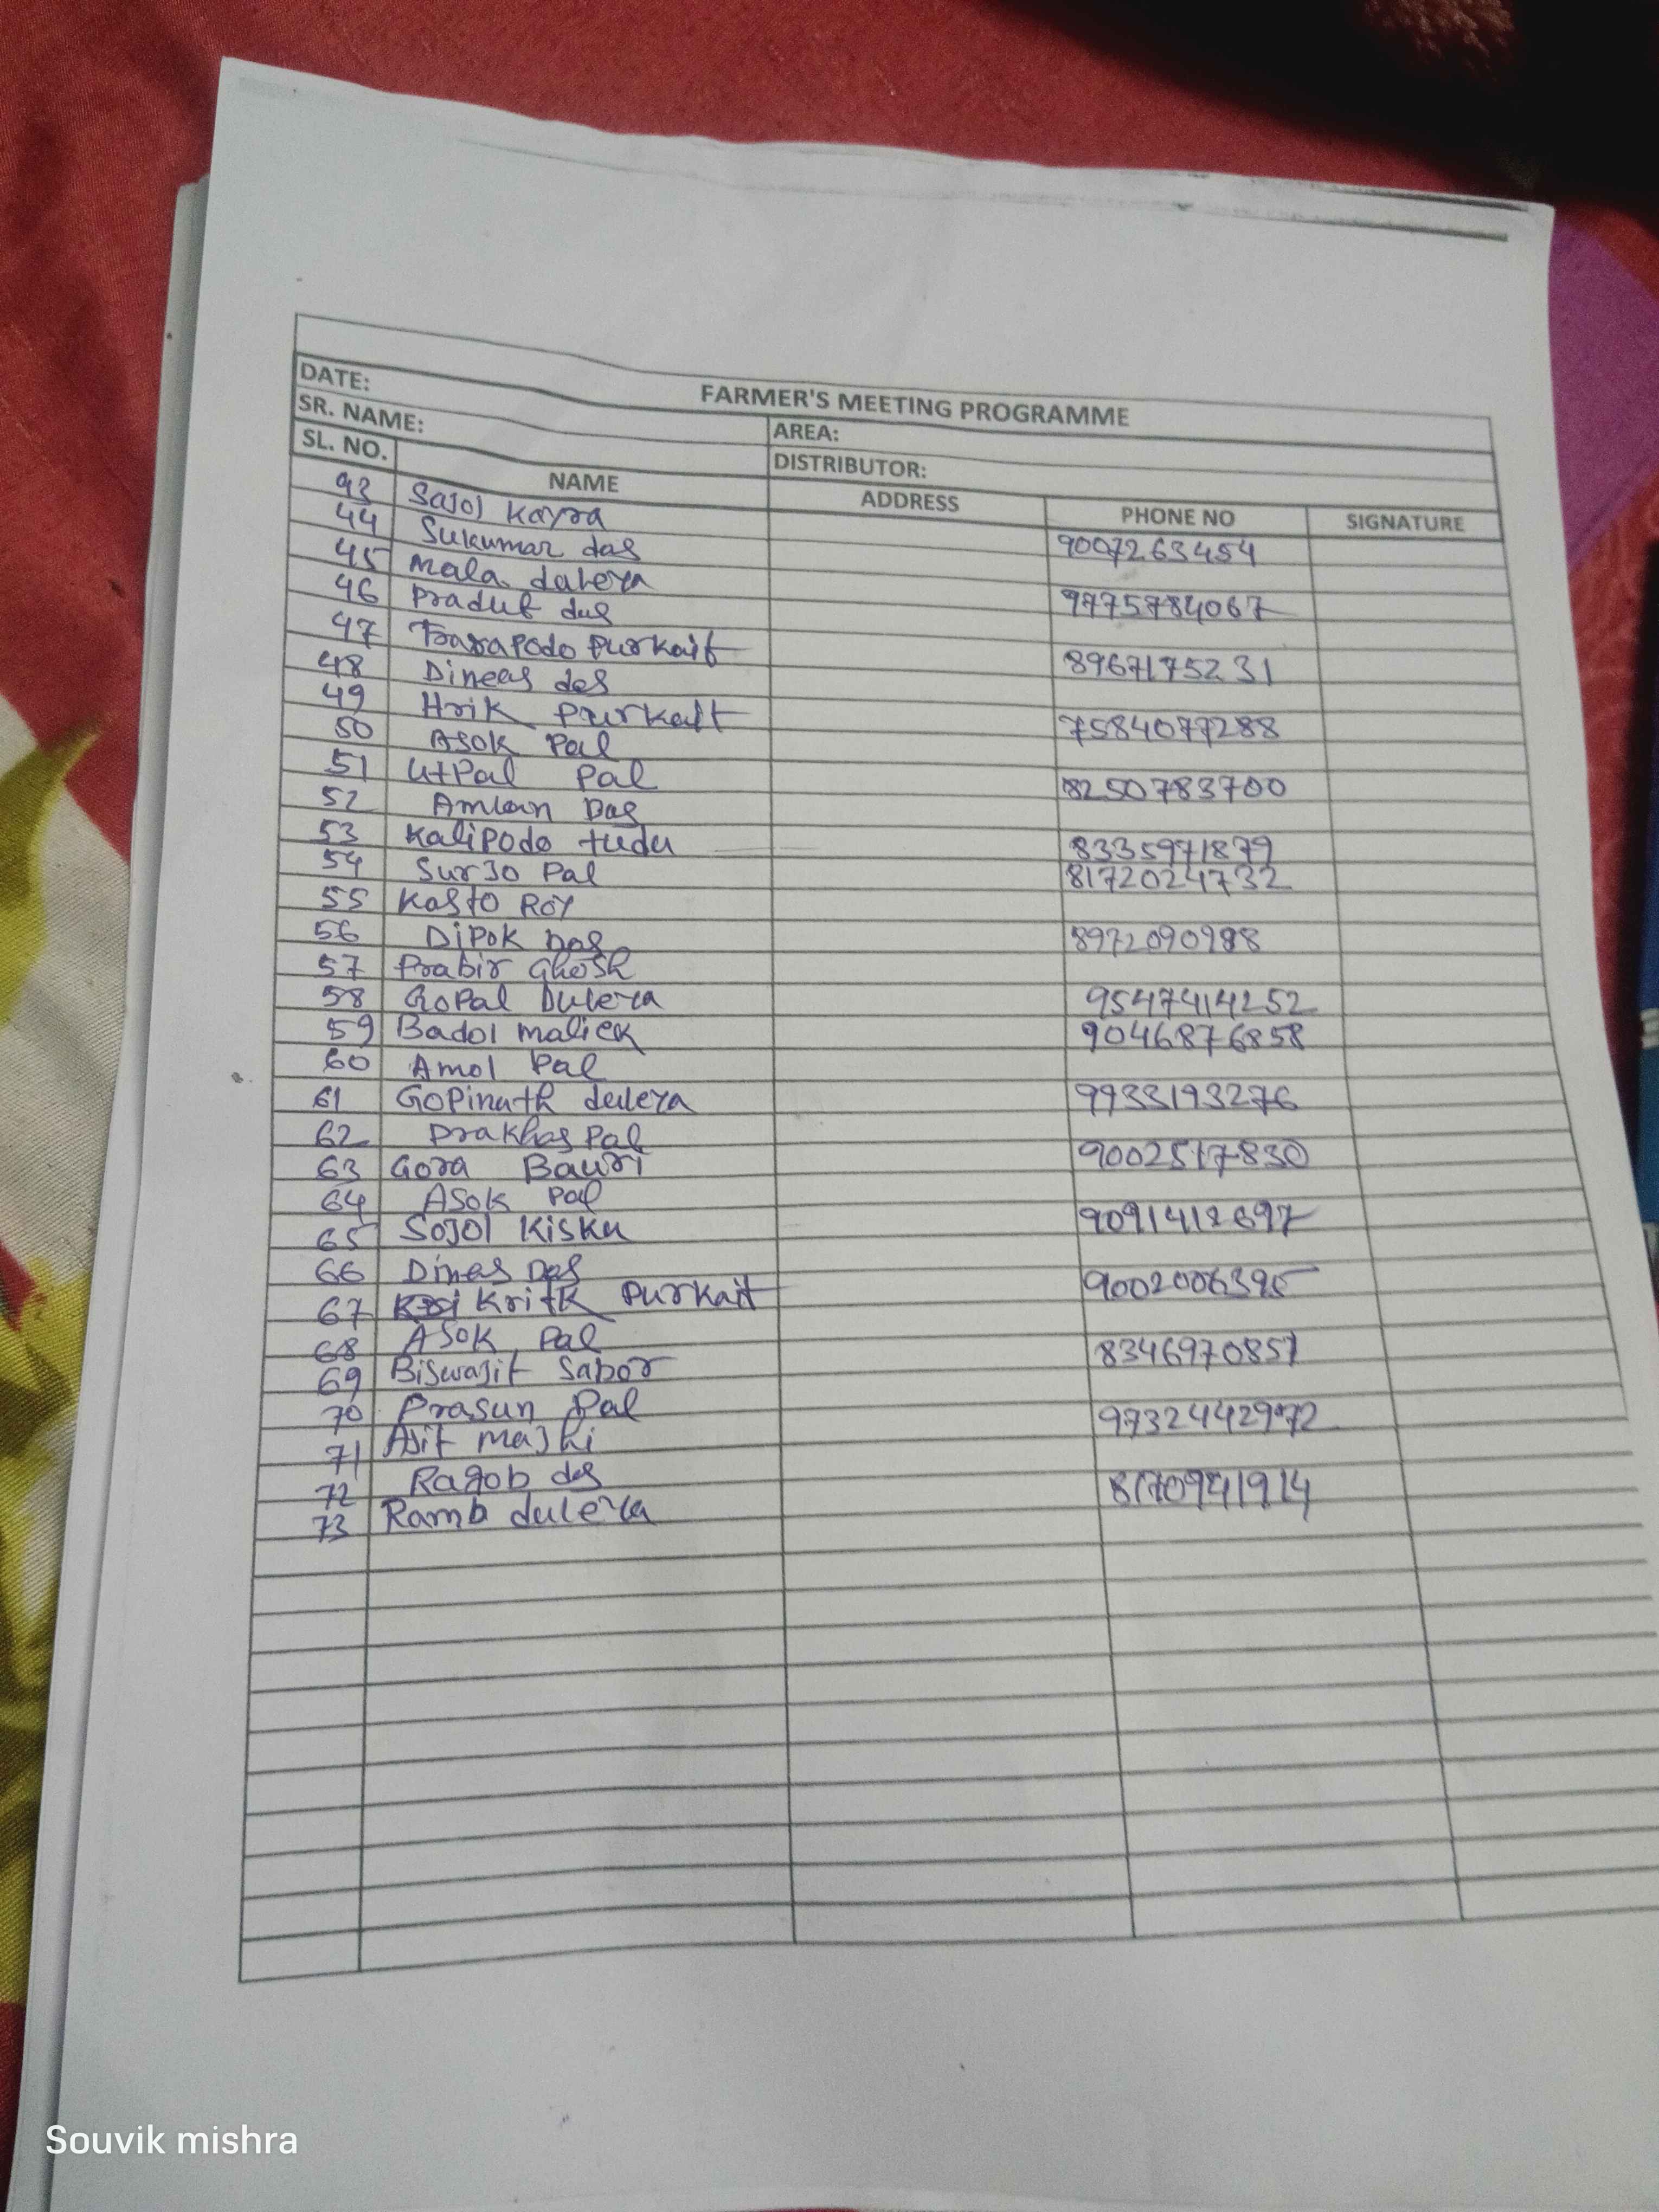 FARMER'S MEETING PROGRAMME
DATE: AREA:
SR. NAME: DISTRIBUTOR:
SL. NO. NAME ADDRESS PHONE NO SIGNATURE
43 Sajol Kayra 9007263454
44 Sukumar das
45 Mala dalera 9775784067
46 Pradut das
47 Tarapodo Purkait 8967175231
48 Dineas das
49 Hrik Purkait 7584077288
50 Asok Pal
51 UtPal Pal 8250783700
52 Amlan Das
53 Kalipodo tudu 8335971879
54 Surjo Pal 8172024732
55 Kasto Roy
56 Dipok Das 8972090988
57 Prabir Ghosh
58 Gopal Dulera 9547414252
59 Badol malick 9046876858
60 Amol Pal
61 Gopinath dulera 9933193276
62 Prakhas Pal
63 Gora Bauri 9002517830
64 Asok Pal
65 Sojol Kisku 9091412697
66 Dines Das
67 Kritk Purkait 9002006395
68 Asok Pal
69 Biswajit Sabor 8346970857
70 Prasun Pal
71 Ajit majhi 9732442972
72 Ragob das
73 Ramb dulera 8170941914
Souvik mishra